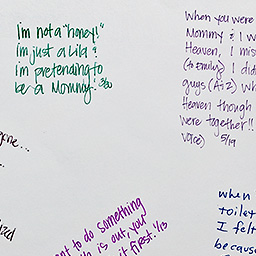 I'm not a "honey!"
I'm just a Lila &
I'm pretending to
be a Mommy! 3/20
When you were
Mommy & I w
Heaven, I mis
(to Emily) I di
guys (A & Z) wh
Heaven though
were together!!
5/19
ne...
zed
nt to do something
is out, you
it first. 1/13
when
toile
I felt
becaus